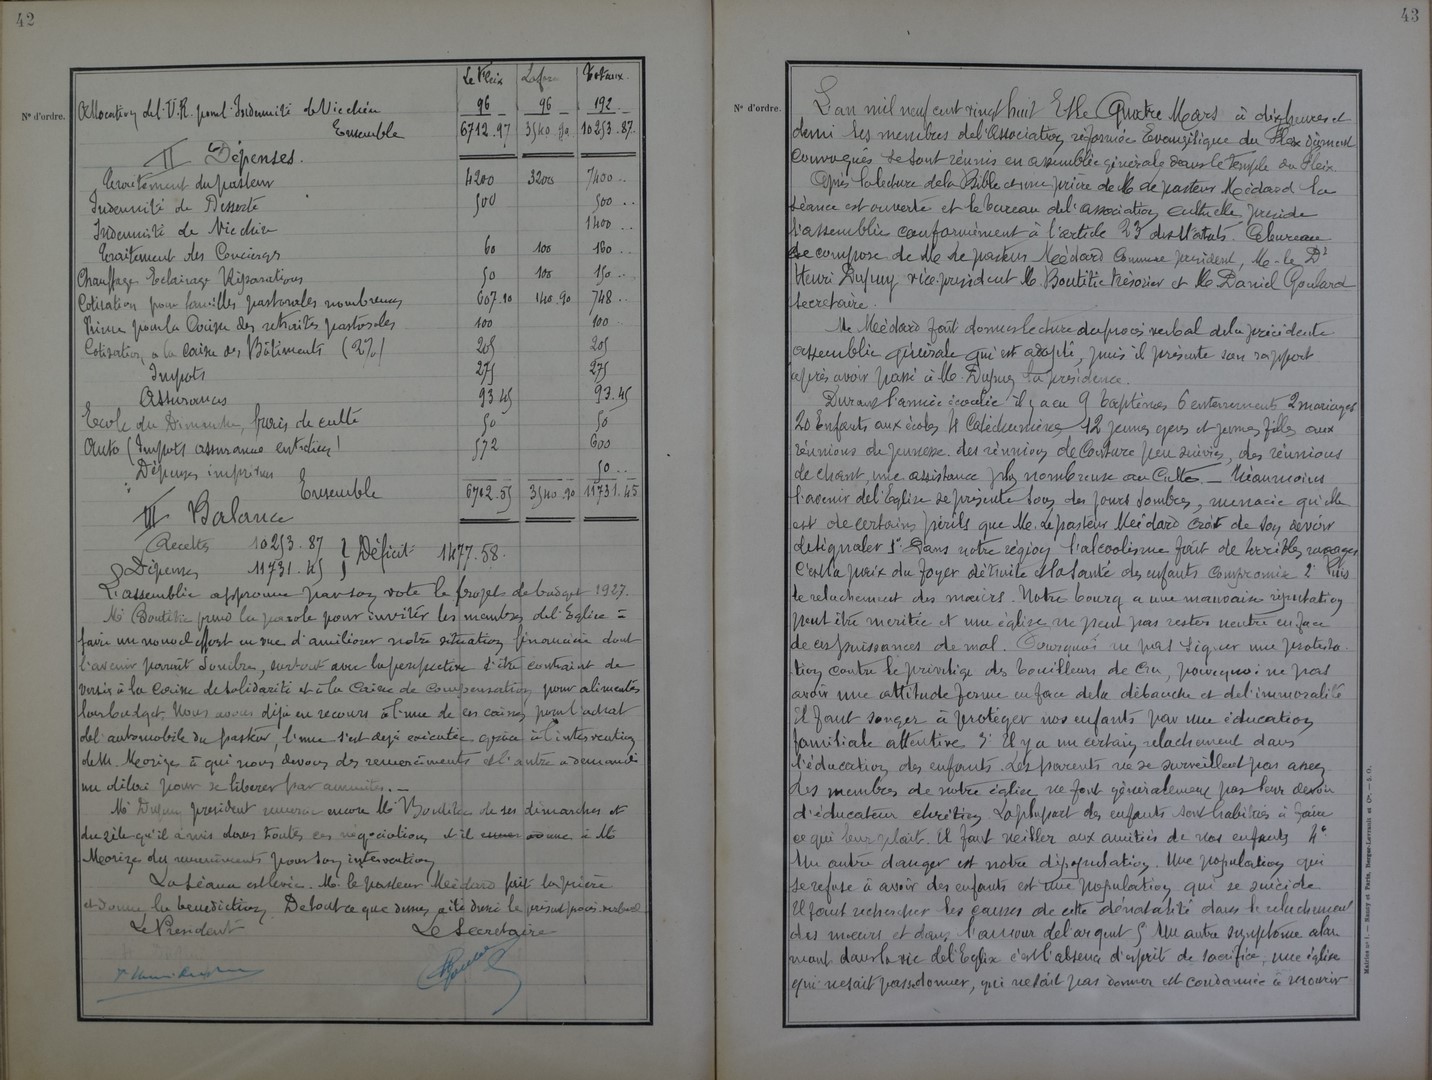 42
Le Fleix Laforce Totaux
N° d'ordre.
Allocation de l'U.R. pour Indemnité de Vie chère 96 96 192
Ensemble 6712.97 3540.90 10253.87
II Dépenses.
Traitement du pasteur 4200 3200 7400..
Indemnité de Desserte 500 500..
Indemnité de Vie chère 1400..
Traitement des Concierges 60 100 160..
Chauffage Eclairage Réparations 50 100 150..
Cotisation pour familles pastorales nombreuses 607.10 140.90 748..
Prime pour la Caisse des retraites pastorales 100 100..
Cotisation à la caisse des Bâtiments (2%) 205 205
Impots 275 275
Assurances 93.45 93.45
Ecole du Dimanche, frais de culte 50 50
Auto (Impots assurance entretien) 572 600
Dépenses imprévues 50..
Ensemble 6712.55 3540.90 11731.45
III Balance
Recettes 10253.87 } Déficit 1477.58.
Dépenses 11731.45
L'assemblée approuve par son vote le projet de budget 1927.
Mr Boutitie prend la parole pour inviter les membres de l'Eglise à
faire un nouvel effort en vue d'améliorer notre situation financière dont
l'avenir parait sombre, surtout avec la perspective d'être contraint de
verser à la Caisse de solidarité et à la Caisse de Compensation pour alimenter
leur budget. Nous avons déjà eu recours à l'une de ces caisses pour l'achat
de l'automobile du pasteur, l'une s'est déjà exécutée grâce à l'intervention
de M. Morize à qui nous devons des remerciements et l'autre a demandé
un délai pour se libérer par annuités.—
Mr Dupuy président remercie encore Mr Boutitie de ses démarches et
du zèle qu'il a mis dans toutes ces négociations, et il donne à Mr
Morize des remerciements pour son intervention
La séance est levée. M. le pasteur Médard fait la prière
et donne la bénédiction. De tout ce que dessus a été dressé le présent procès-verbal
Le Président Le Secretaire
43
N° d'ordre.
L'an mil neuf cent vingt huit Et le Quatre Mars à dix heures et
demi les membres de l'Association réformée Evangélique du Fleix dûment
convoqués se sont réunis en assemblée générale dans le Temple du Fleix.
Après la lecture de la Bible et une prière de M de pasteur Médard la
séance est ouverte et le bureau de l'association cultuelle préside
l'assemblée conformément à l'article 23 des statuts. Ce bureau
se compose de M le pasteur Médard comme président, M. le Dr
Henri Dupuy vice-président M. Boutitie trésorier et M. Daniel Goulard
secretaire.
M Médard fait donner lecture du procès verbal de la précédente
assemblée générale qui est adopté, puis il présente son rapport
après avoir passé à M. Dupuy la présidence.
Durant l'année écoulée il y a eu 9 baptêmes 6 enterrements 2 mariages
20 Enfants aux écoles 4 Catéchumènes 12 jeunes gens et jeunes filles aux
réunions de jeunesse. des réunions de Couture peu suivies, des réunions
de chant, une assistance plus nombreuse au Culte.— Néanmoins
l'avenir de l'Eglise se présente sous des jours sombres, menacée qu'elle
est de certains périls que M. le pasteur Médard croit de son devoir
de signaler 1° Dans notre région l'alcoolisme fait de terribles ravages
C'est la paix du foyer détruite et la santé des enfants compromise 2° Puis
le relachement des mœurs. Notre bourg a une mauvaise réputation
peut être méritée et une église ne peut pas rester neutre en face
de ces puissances de mal. Pourquoi ne pas signer une protesta-
tion contre le privilège des bouilleurs de Cru, pourquoi ne pas
avoir une attitude ferme en face de la débauche et de l'immoralité
Il faut songer à protéger nos enfants par une éducation
familiale attentive 3° Il y a un certain relachement dans
l'éducation des enfants. Les parents ne se surveillent pas assez
des membres de notre église ne font généralement pas leur devoir
d'éducateur chrétien. La plupart des enfants sont habitués à faire
ce qui leur plait. Il faut veiller aux amitiés de nos enfants 4°
Un autre danger est notre dépopulation. Une population qui
se refuse à avoir des enfants est une population qui se suicide
Il faut rechercher les causes de cette dénatalité dans le relachement
des mœurs et dans l'amour de l'argent 5 Un autre symptôme alar
mant dans la vie de l'Eglise c'est l'absence d'esprit de sacrifice, une église
qui ne sait pas se donner, qui ne sait pas donner est condamnée à mourir
Mairies n° 1. — Nancy et Paris, Berger-Levrault et Cie. — S. O.